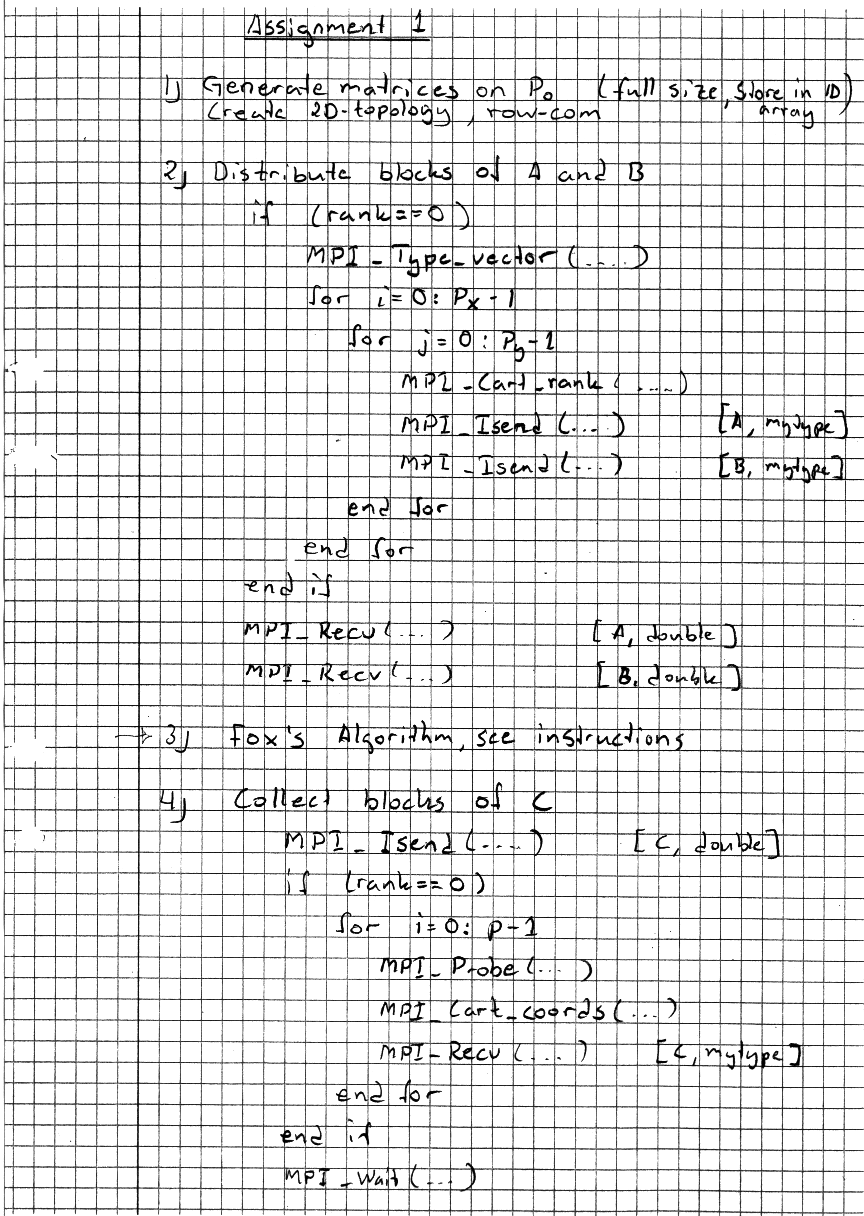 Assignment 1
1) Generate matrices on P0 (full size, store in 1D array)
Create 2D-topology, row-com
2) Distribute blocks of A and B
if (rank==0)
MPI_Type_vector(....)
for i=0:Px-1
for j=0:Py-1
MPI_Cart_rank(....)
MPI_Isend(....) [A, mytype]
MPI_Isend(...) [B, mytype]
end for
end for
end if
MPI_Recv(....) [A, double]
MPI_Recv(...) [B, double]
→ 3) Fox's Algorithm, see instructions
4) Collect blocks of C
MPI_Isend(....) [C, double]
if (rank==0)
for i=0:p-1
MPI_Probe(...)
MPI_Cart_coords(...)
MPI_Recv(....) [C, mytype]
end for
end if
MPI_Wait(...)